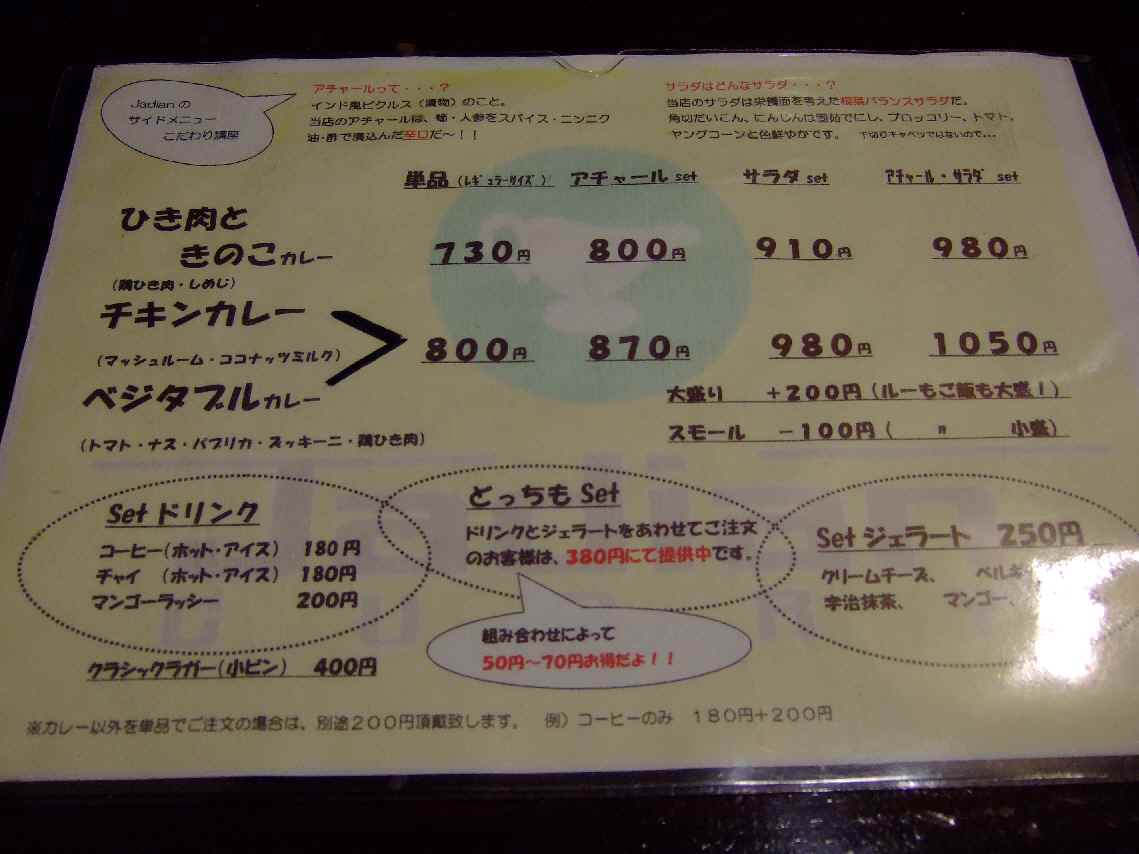 Jadianの
サイドメニュー
こだわり講座
アチャールって・・・？
インド風ピクルス（漬物）のこと。
当店のアチャールは、蕪・人参をスパイス・ニンニク
油・酢で漬込んだ辛口だ～！！
サラダはどんなサラダ・・・？
当店のサラダは栄養面を考えた根菜バランスサラダだ。
角切だいこん、にんじんは固茹でにし、ブロッコリー、トマト、
ヤングコーンと色鮮ゆかです。 千切りキャベツではないので…
単品（ﾚｷﾞｭﾗｰｻｲｽﾞ） アチャール set サラダ set ｱﾁｬｰﾙ・ｻﾗﾀﾞ set
ひき肉と
きのこカレー 730円 800円 910円 980円
（鶏ひき肉・しめじ）
チキンカレー
（マッシュルーム・ココナッツミルク） 800円 870円 980円 1050円
ベジタブルカレー
（トマト・ナス・パプリカ・ズッキーニ・鶏ひき肉）
大盛り +200円（ルーもご飯も大盛！）
スモール −100円（ 〃 小盛）
Set ドリンク
コーヒー（ホット・アイス） 180円
チャイ （ホット・アイス） 180円
マンゴーラッシー 200円
クラシックラガー（小ビン） 400円
どっちも Set
ドリンクとジェラートをあわせてご注文
のお客様は、380円にて提供中です。
組み合わせによって
50円～70円お得だよ！！
Set ジェラート 250円
クリームチーズ、 ベルギ
宇治抹茶、 マンゴー、
※カレー以外を単品でご注文の場合は、別途200円頂戴致します。 例）コーヒーのみ 180円+200円